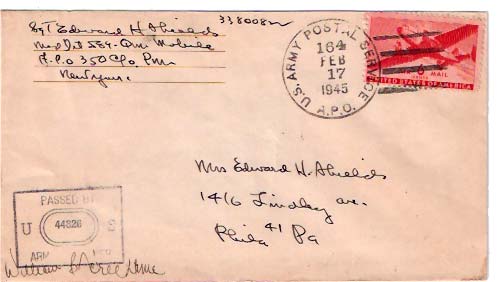 Sgt Edward H. Shields 338008
Med Det 559 - Qm
A.P.O 350 c/o Pm
New York
U.S. ARMY POSTAL SERVICE
164
FEB
17
1945
A.P.O.
6
AIR MAIL
UNITED STATES OF AMERICA
Mrs Edward H. Shields
1416 Lindley ave.
Phila 41 Pa
PASSED BY
U 44826 S
ARMY
William